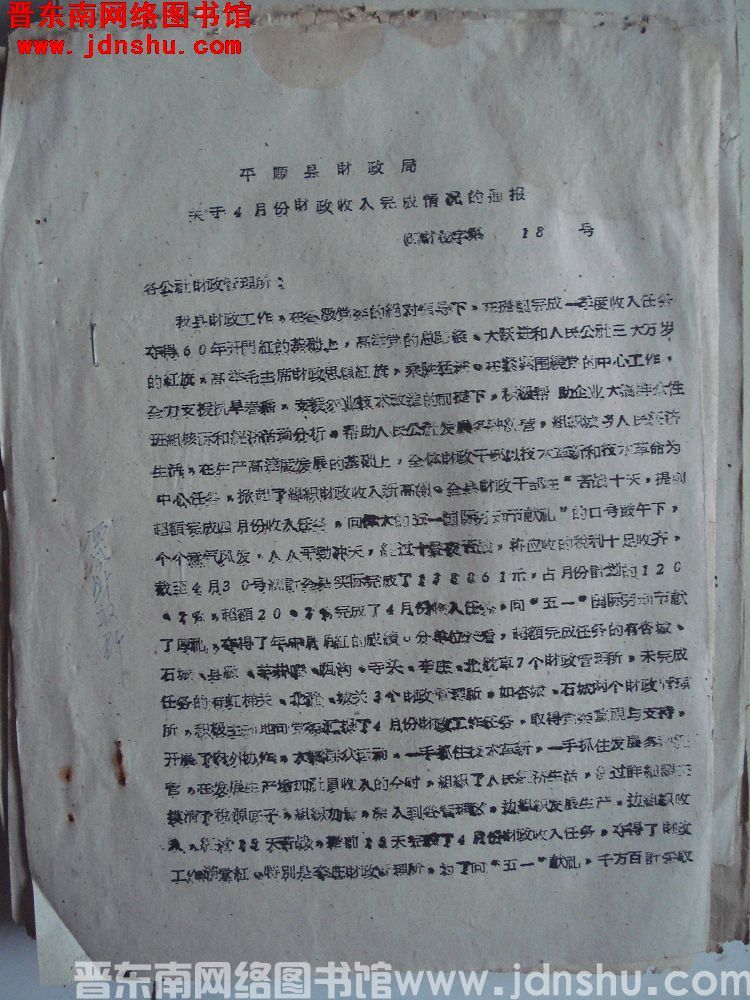 晋东南网络图书馆
www.jdnshu.com
平顺县財政局
关于4月份財政收入完成情况的通报
財秘字第 18 号
各公社財政管理所：
我县財政工作，在各級党委的絕对領导下，在提前完成一季度收入任务
夺得60年开門紅的基础上，高举党的总路綫、大跃进和人民公社三大万岁
的紅旗，高举毛主席財政思想紅旗，乘胜猛进。在紧紧围繞党的中心工作，
全力支援抗旱春播，支援 业技术改造的前提下，积极帮助企业大搞群众性
班組核 和經济活动分析。帮助人民公社发展多种 营，組織 人民經济
生活，在生产高速度发展的基础上，全体財政干部以技术革新和技术革命为
中心任务，掀起了組积財政收入新高潮。全县財政干部在“苦战十天，提前
超額完成四月份收入任务，向偉大的五一国际劳动节献礼”的口号鼓午下，
个个意气风发，人人干劲冲天，經过十昼夜苦战，将应收的稅利十足收齐，
截至4月30号 計全县实际完成了138861元，占月份計划的120
.7%，超額20.7%完成了4月份收入任务。向“五一”国际劳动节献
了厚礼，夺得了年中月月紅的成績。分单位来看，超額完成任务的有杏城、
石城、县 、 、西沟、寺头、李庄、北 7个財政管理所，未完成
任务的有虹梯关、北 、 关3个財政管理所，如杏城、石城两个財政管理
所，积极主动地向党委汇报了4月份財政工作任务，取得党委重視与支持，
开展了內外协作，大搞群众运动。一手抓住技术革新，一手抓住发展多种經
营，在发展生产增加社員收入的今时，組織了人民經济生活，
摸清了稅源底子，組織力量，深入到各管理区，边組织发展生产，边組織收
入，經过 天苦战，提前 天完成了4月份財政收入任务。夺得了財政
工作滿堂紅。特別是李庄財政管理所，为了向“五一”献礼，千方百計
晋东南网络图书馆 www.jdnshu.com